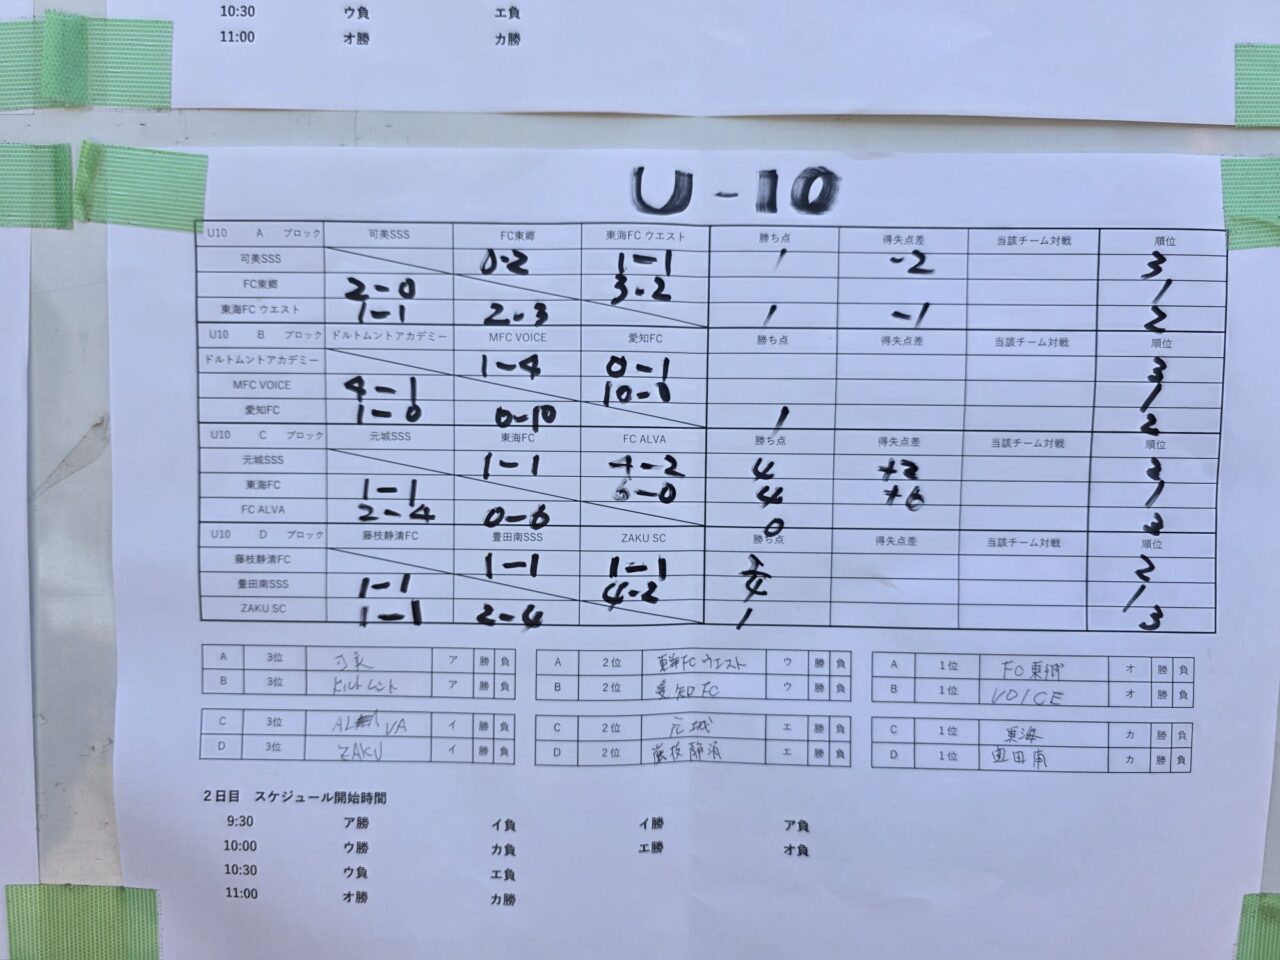 10:30 ウ負 エ負
11:00 オ勝 カ勝
U-10
U10 A ブロック 可美SSS FC東郷 東海FC ウエスト 勝ち点 得失点差 当該チーム対戦 順位
可美SSS 0-2 1-1 1 -2 3
FC東郷 2-0 3-2 1
東海FC ウエスト 1-1 2-3 1 -1 2
U10 B ブロック ドルトムントアカデミー MFC VOICE 愛知FC 勝ち点 得失点差 当該チーム対戦 順位
ドルトムントアカデミー 1-4 0-1 3
MFC VOICE 4-1 10-0 1
愛知FC 1-0 0-10 1 2
U10 C ブロック 元城SSS 東海FC FC ALVA 勝ち点 得失点差 当該チーム対戦 順位
元城SSS 1-1 4-2 4 +2 2
東海FC 1-1 6-0 4 +6 1
FC ALVA 2-4 0-6 0 3
U10 D ブロック 藤枝静清FC 豊田南SSS ZAKU SC 勝ち点 得失点差 当該チーム対戦 順位
藤枝静清FC 1-1 1-1 2 2
豊田南SSS 1-1 4-2 4 1
ZAKU SC 1-1 2-4 1 3
A 3位 可美 ア 勝 負 A 2位 東海FCウエスト ウ 勝 負 A 1位 FC東郷 オ 勝 負
B 3位 ドルトムント ア 勝 負 B 2位 愛知FC ウ 勝 負 B 1位 VOICE オ 勝 負
C 3位 ALVA イ 勝 負 C 2位 元城 エ 勝 負 C 1位 東海 カ 勝 負
D 3位 ZAKU イ 勝 負 D 2位 藤枝静清 エ 勝 負 D 1位 豊田南 カ 勝 負
2日目 スケジュール開始時間
9:30 ア勝 イ負 イ勝 ア負
10:00 ウ勝 カ負 エ勝 オ負
10:30 ウ負 エ負
11:00 オ勝 カ勝